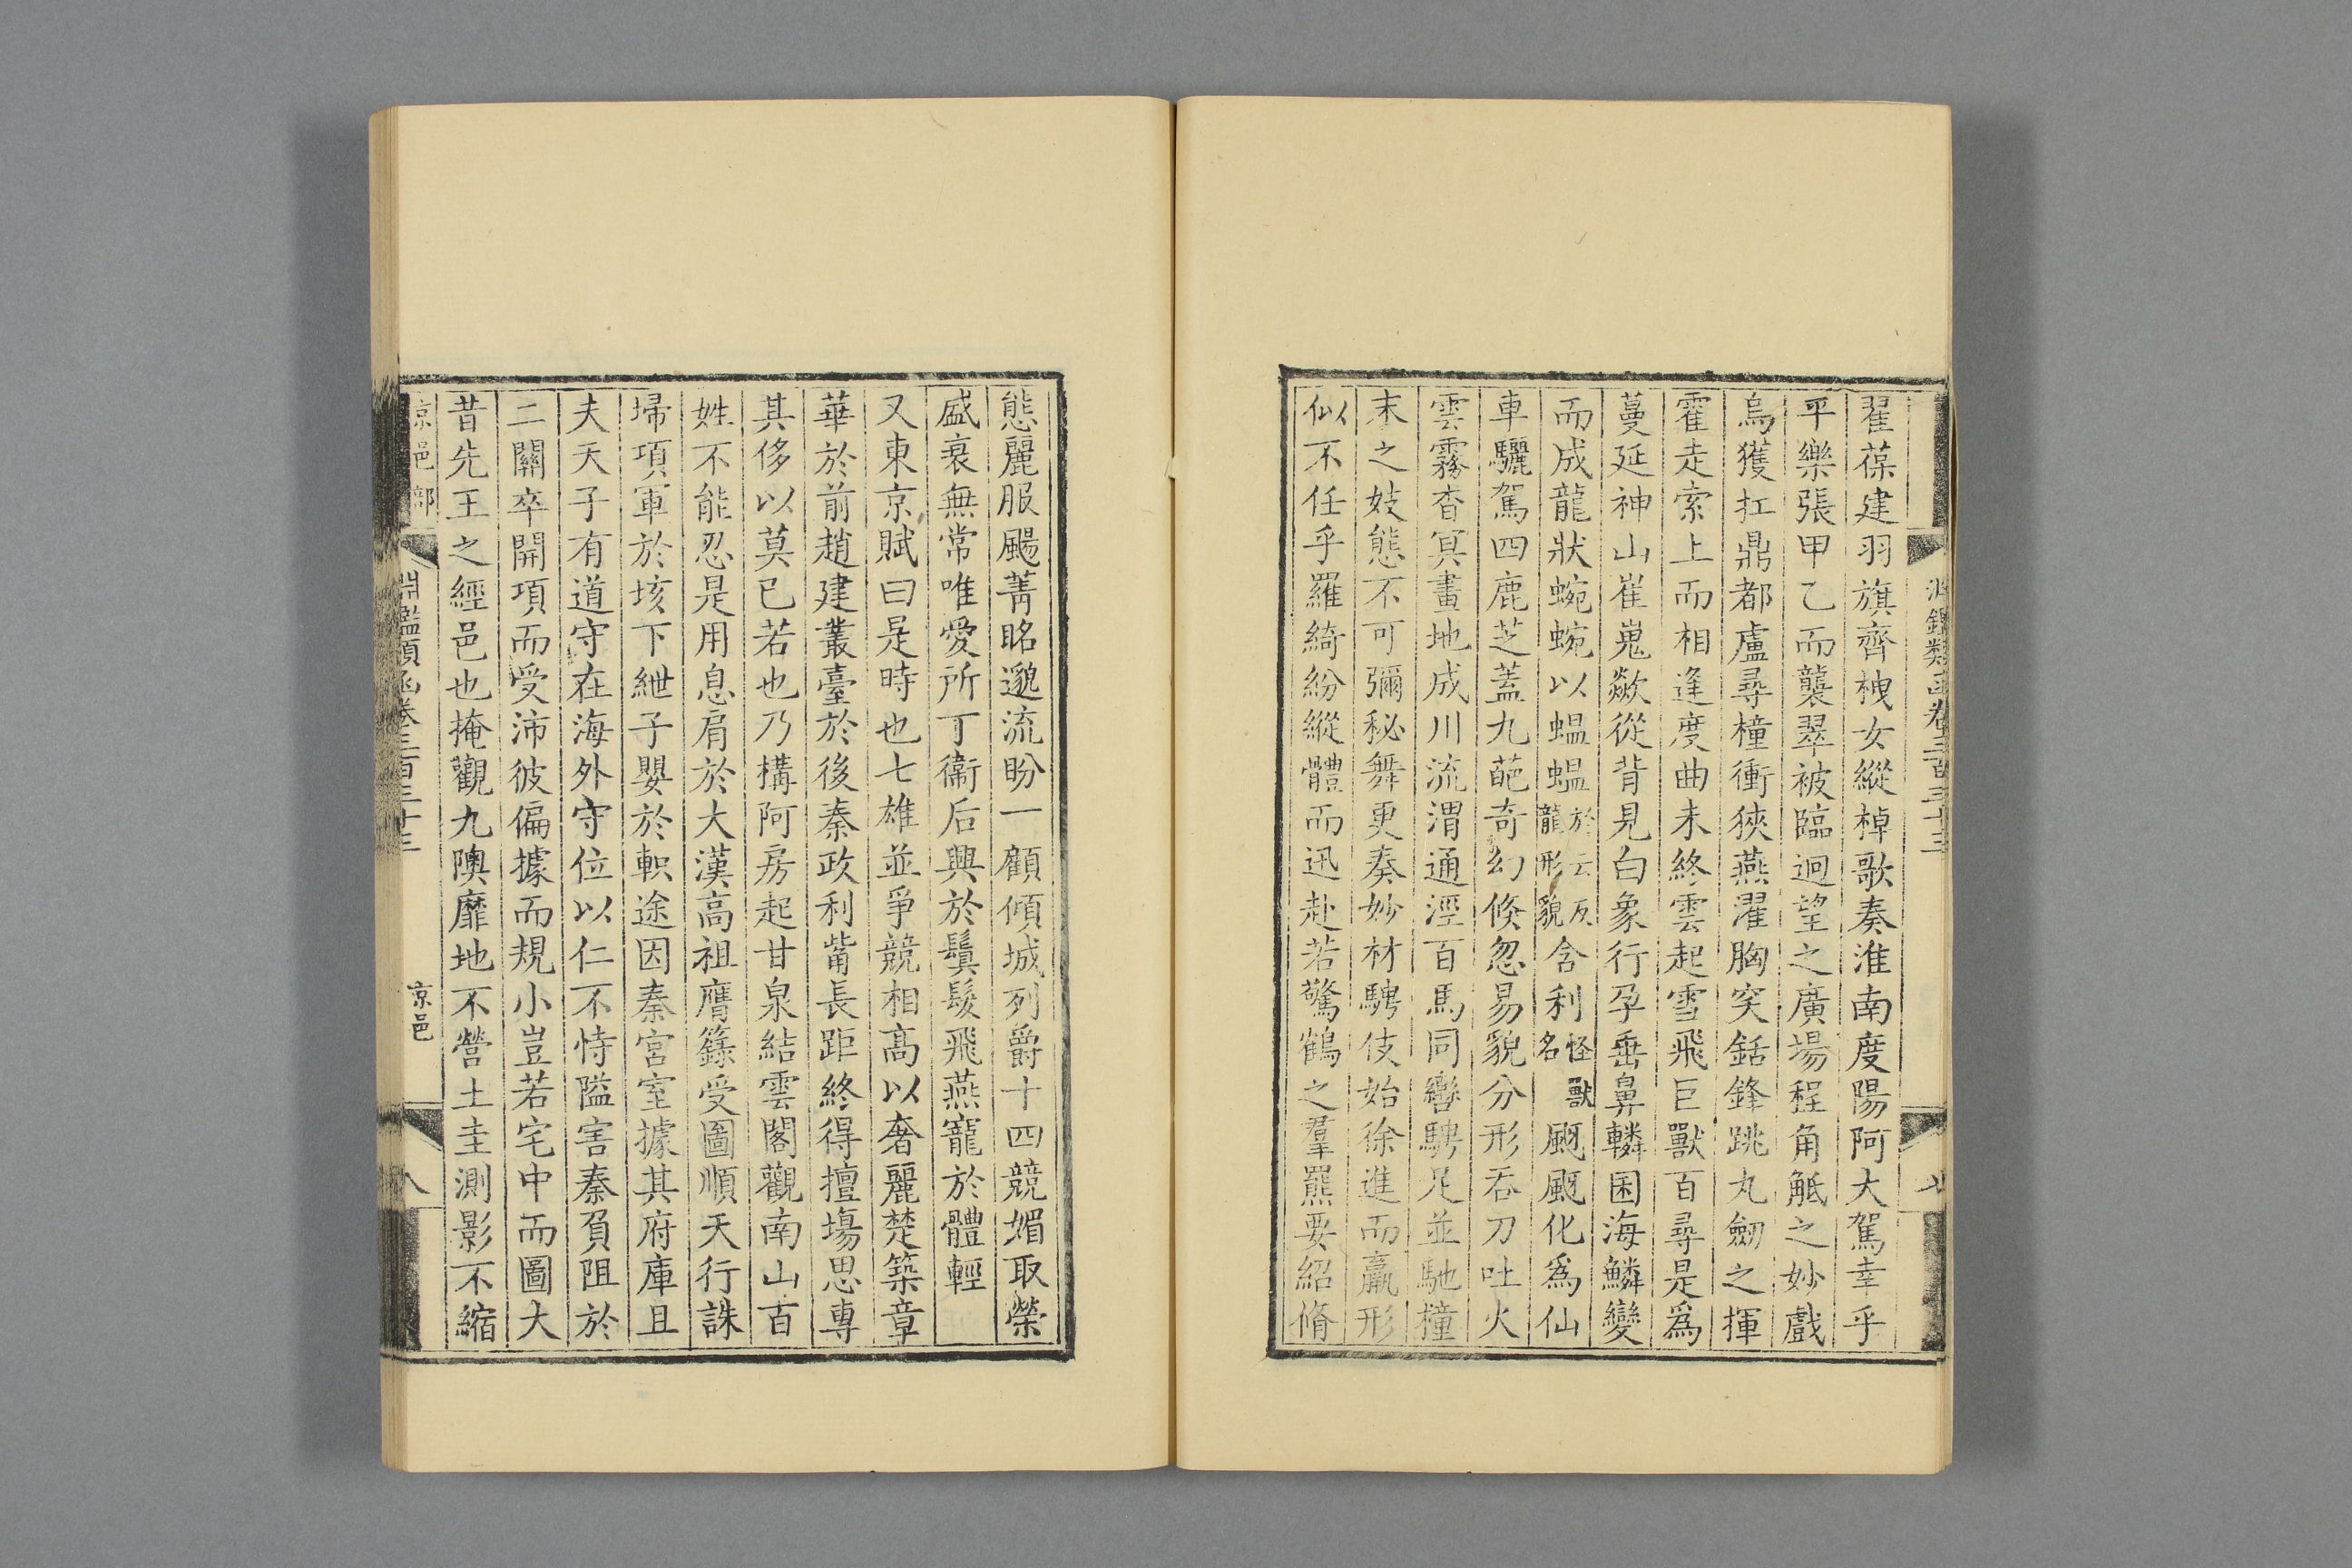 翟葆建羽旗齊栧女縱棹歌奏淮南度陽阿大駕幸乎
平樂張甲乙而襲翠被臨迥望之廣場程角觝之妙戲
烏獲扛鼎都盧尋橦衝狹燕濯胸突銛鋒跳丸劒之揮
霍走索上而相逢度曲未終雲起雪飛巨獸百尋是爲
蔓延神山崔嵬歘從背見白象行孕垂鼻轔囷海鱗變
而成龍狀蜿蜿以蝹蝹於云反龍形貌含利怪獸名颬颬化爲仙
車驪駕四鹿芝蓋九葩奇幻倏忽易貌分形吞刀吐火
雲霧杳冥畫地成川流渭通涇百馬同轡騁足並馳橦
末之妓態不可彌秘舞更奏妙材騁伎始徐進而羸形
似不任乎羅綺紛縱體而迅赴若驚鶴之羣羆要紹脩
態麗服颺菁眳邈流盼一顧傾城列爵十四競媚取榮
盛衰無常唯愛所丁衞后興於鬒髮飛燕寵於體輕
又東京賦曰是時也七雄並爭競相高以奢麗楚築章
華於前趙建叢臺於後秦政利觜長距終得擅場思專
其侈以莫已若也乃構阿房起甘泉結雲閣觀南山百
姓不能忍是用息肩於大漢高祖膺籙受圖順天行誅
埽項軍於垓下紲子嬰於軹途因秦宮室據其府庫且
夫天子有道守在海外守位以仁不恃隘害秦負阻於
二關卒開項而受沛彼偏據而規小豈若宅中而圖大
昔先王之經邑也掩觀九隩靡地不營土圭測影不縮
京邑部
淵鑑類函卷三百三十三
京邑
八